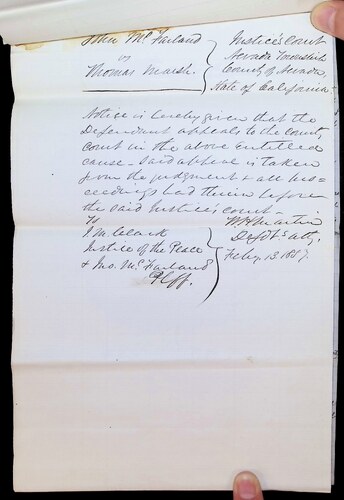 John McFarland } Justice's Court
vs } Nevada Township
Thomas Marsh. } County of Nevada,
State of California
Notice is hereby given that the
Defendant appeals to the County
Court in the above entitled
cause - Said appeal is taken
from the judgment & all pro=
ceedings had therein before
the said Justice's Court -
To } W.H. Martin
J. M. Clark } Defdt's atty.
Justice of the Peace } Feby 13 1857.
& Jno. McFarland
Plff.